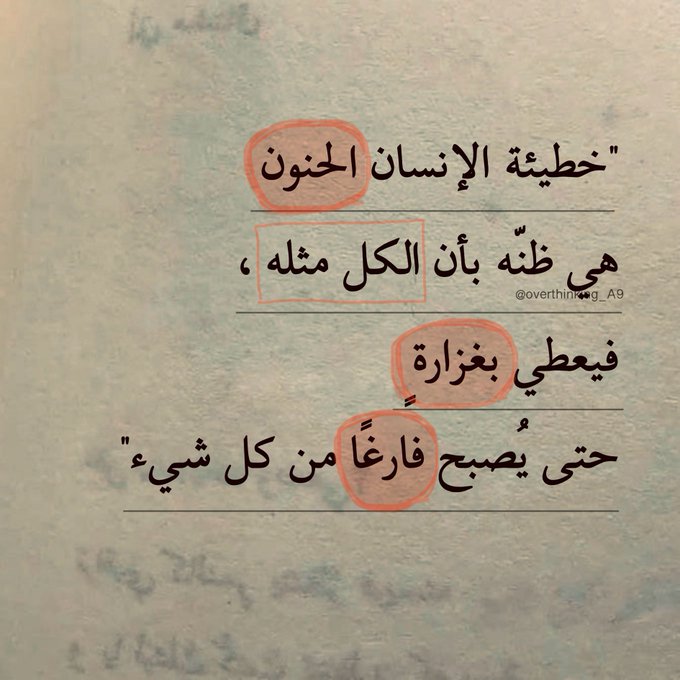 "خطيئة الإنسان الحنون
هي ظنّه بأن الكل مثله ،
@overthinking_A9
فيعطي بغزارةٍ
حتى يُصبح فارغًا من كل شيء"